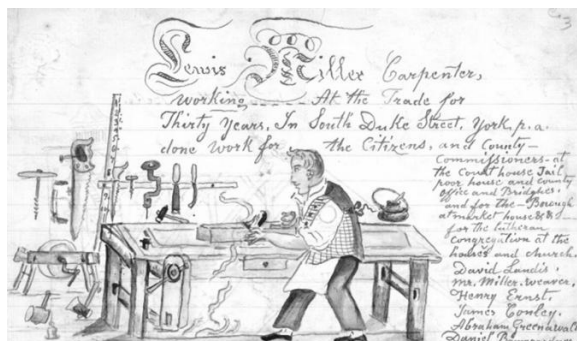 3
Lewis Miller Carpenter,
working At the Trade for
Thirty Years, In South Duke Street, York, p.a.
done work for the Citizens, and County-
Commissioners- at
the Court house Jail,
poor house and county
office and Bridghes.
and for the Borough
at market house &&
for the lutheran
Congregation at the
houses and church.
David Landis,
Mr. Miller. weaver,
Henry Ernst,
James Conley.
Abraham Greenawalt
Daniel